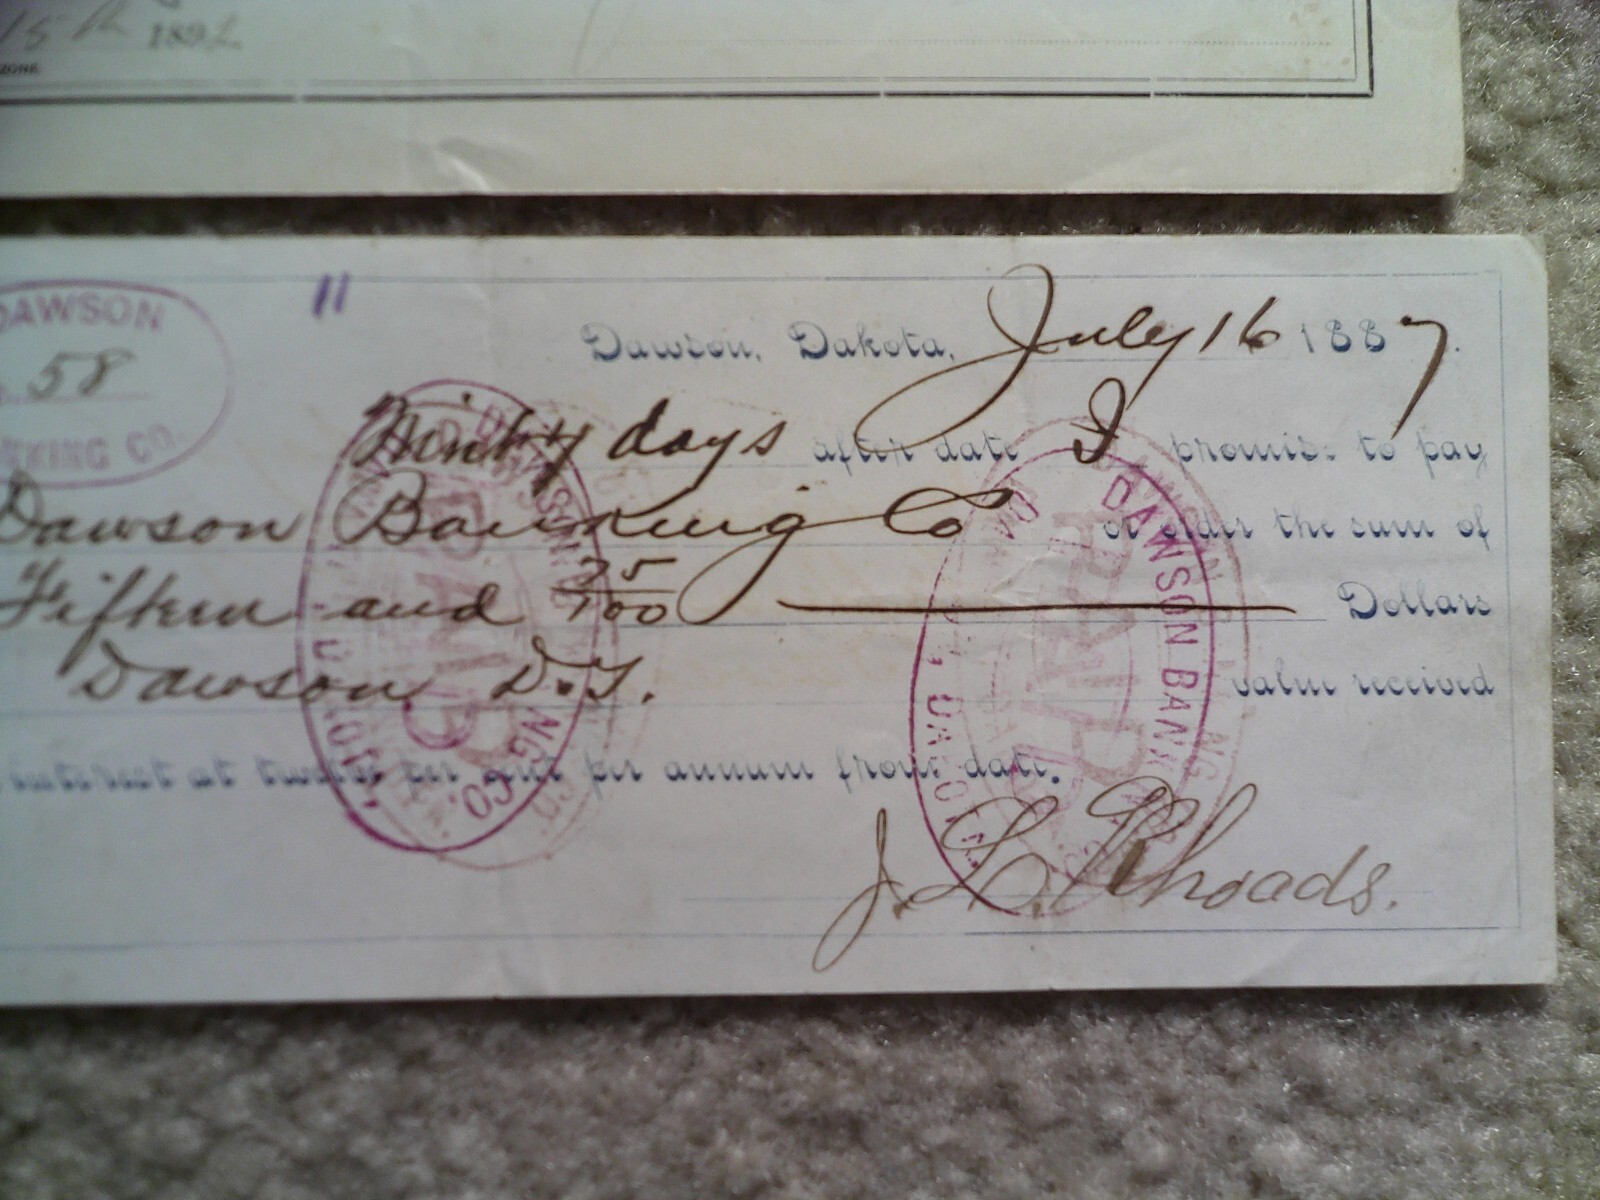 15th 1892
ZONE
DAWSON
58
BANKING CO.
11
Dawson, Dakota, July 16 1887.
Ninty days after date I promise to pay
Dawson Banking Co or order the sum of
Fifteen and 75/100 Dollars
Dawson D.T. value received
interest at twelve per cent per annum from date.
J. L. Rhoads.
DAWSON BANKING CO.
PAID
DAWSON BANKING CO.
PAID